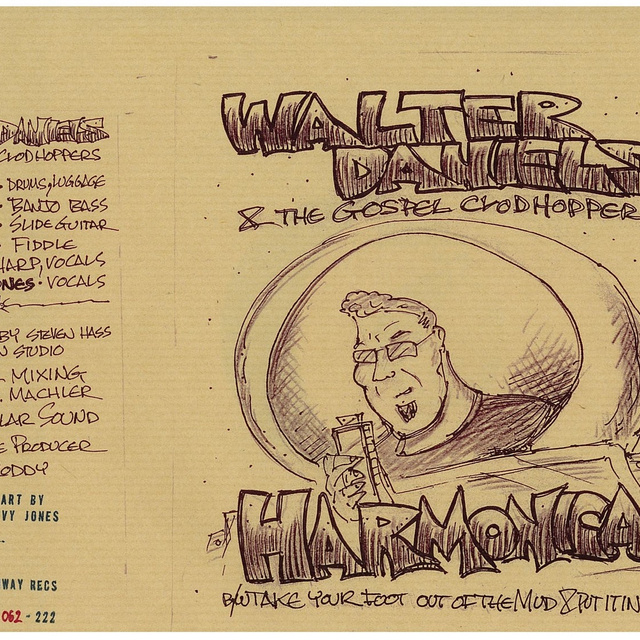 DANIELS
CLODHOPPERS
• DRUMS, LUGGAGE
• BANJO BASS
• SLIDE GUITAR
• FIDDLE
HARP, VOCALS
ONES • VOCALS
BY STEVEN HASS
N STUDIO
MIXING
. MACHLER
LAR SOUND
E PRODUCER
ODDY
ART BY
VY JONES
WAY RECS
062 - 222
WALTER
DANIELS
& THE GOSPEL CLODHOPPER
HARMONICA
B/W TAKE YOUR FOOT OUT OF THE MUD & PUT IT IN